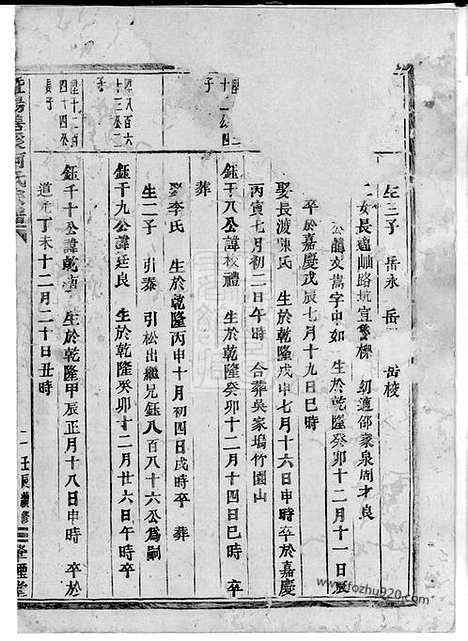 生三子 岳永 岳 岳棱
二女長適岫路坑宣 幼適邵家泉周才良
公諱文嵩字中如 生於乾隆癸卯十二月十一日
卒於嘉慶戊辰七月十九日巳時
娶長波陳氏 生於乾隆戊申七月十六日申時卒於嘉慶
丙寅七月初二日午時 合葬吳家塢竹園山
鈺千八公諱校禮 生於乾隆癸卯十二月十四日巳時 卒
葬
娶李氏 生於乾隆丙申十月初四日戌時卒 葬
生二子 引泰 引松出繼兄鈺八百八十六公為嗣
鈺千九公諱廷良 生於乾隆癸卯十二月廿六日午時卒
鈺千十公諱乾 生於乾隆甲辰正月十八日申時 卒於
道光丁未十二月二十日丑時
十二公四
子
八百六
十三公二
子
十二百
四十四公
長子
暨陽 溪何氏宗譜
二 壬辰續修